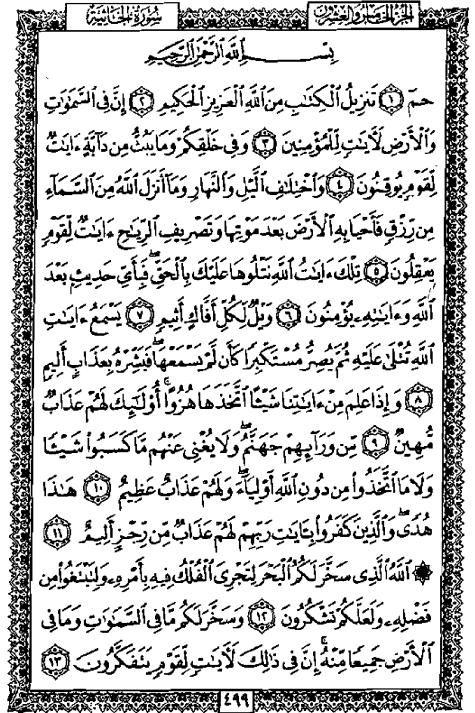 سُورَةُ الجَاثِيَةِ الجُزْءُ الخَامِسُ وَالعِشْرُونَ
بِسْمِ ٱللَّهِ ٱلرَّحْمَٰنِ ٱلرَّحِيمِ
حمٓ ﴿١﴾ تَنزِيلُ ٱلْكِتَٰبِ مِنَ ٱللَّهِ ٱلْعَزِيزِ ٱلْحَكِيمِ ﴿٢﴾ إِنَّ فِى ٱلسَّمَٰوَٰتِ
وَٱلْأَرْضِ لَءَايَٰتٍ لِّلْمُؤْمِنِينَ ﴿٣﴾ وَفِى خَلْقِكُمْ وَمَا يَبُثُّ مِن دَآبَّةٍ ءَايَٰتٌ
لِّقَوْمٍ يُوقِنُونَ ﴿٤﴾ وَٱخْتِلَٰفِ ٱلَّيْلِ وَٱلنَّهَارِ وَمَآ أَنزَلَ ٱللَّهُ مِنَ ٱلسَّمَآءِ
مِن رِّزْقٍ فَأَحْيَا بِهِ ٱلْأَرْضَ بَعْدَ مَوْتِهَا وَتَصْرِيفِ ٱلرِّيَٰحِ ءَايَٰتٌ لِّقَوْمٍ
يَعْقِلُونَ ﴿٥﴾ تِلْكَ ءَايَٰتُ ٱللَّهِ نَتْلُوهَا عَلَيْكَ بِٱلْحَقِّ ۖ فَبِأَىِّ حَدِيثٍۭ بَعْدَ
ٱللَّهِ وَءَايَٰتِهِۦ يُؤْمِنُونَ ﴿٦﴾ وَيْلٌ لِّكُلِّ أَفَّاكٍ أَثِيمٍ ﴿٧﴾ يَسْمَعُ ءَايَٰتِ
ٱللَّهِ تُتْلَىٰ عَلَيْهِ ثُمَّ يُصِرُّ مُسْتَكْبِرًا كَأَن لَّمْ يَسْمَعْهَا ۖ فَبَشِّرْهُ بِعَذَابٍ أَلِيمٍ
﴿٨﴾ وَإِذَا عَلِمَ مِنْ ءَايَٰتِنَا شَيْـًٔا ٱتَّخَذَهَا هُزُوًا ۚ أُو۟لَٰٓئِكَ لَهُمْ عَذَابٌ
مُّهِينٌ ﴿٩﴾ مِّن وَرَآئِهِمْ جَهَنَّمُ ۖ وَلَا يُغْنِى عَنْهُم مَّا كَسَبُوا۟ شَيْـًٔا
وَلَا مَا ٱتَّخَذُوا۟ مِن دُونِ ٱللَّهِ أَوْلِيَآءَ ۖ وَلَهُمْ عَذَابٌ عَظِيمٌ ﴿١٠﴾ هَٰذَا
هُدًى ۖ وَٱلَّذِينَ كَفَرُوا۟ بِـَٔايَٰتِ رَبِّهِمْ لَهُمْ عَذَابٌ مِّن رِّجْزٍ أَلِيمٌ ﴿١١﴾
۞ ٱللَّهُ ٱلَّذِى سَخَّرَ لَكُمُ ٱلْبَحْرَ لِتَجْرِىَ ٱلْفُلْكُ فِيهِ بِأَمْرِهِۦ وَلِتَبْتَغُوا۟ مِن
فَضْلِهِۦ وَلَعَلَّكُمْ تَشْكُرُونَ ﴿١٢﴾ وَسَخَّرَ لَكُم مَّا فِى ٱلسَّمَٰوَٰتِ وَمَا فِى
ٱلْأَرْضِ جَمِيعًا مِّنْهُ ۚ إِنَّ فِى ذَٰلِكَ لَءَايَٰتٍ لِّقَوْمٍ يَتَفَكَّرُونَ ﴿١٣﴾
٤٩٩